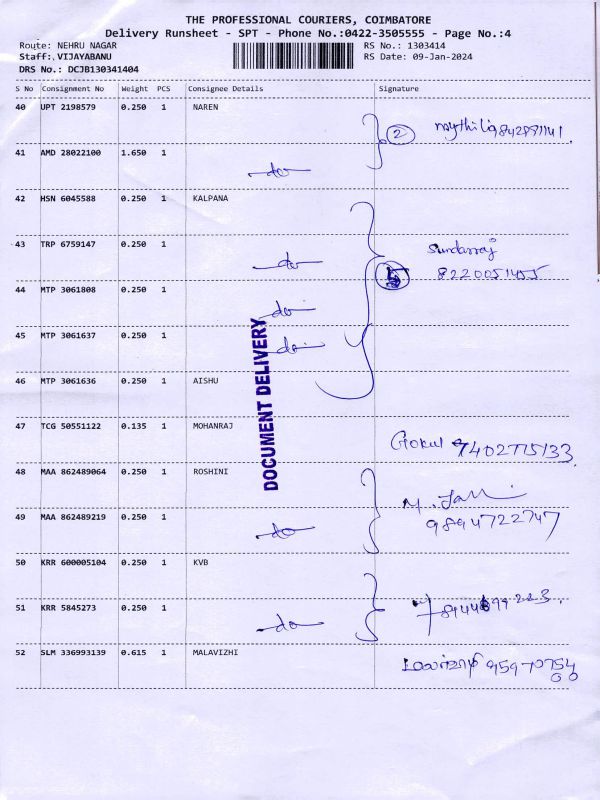 THE PROFESSIONAL COURIERS, COIMBATORE
Delivery Runsheet - SPT - Phone No.:0422-3505555 - Page No.:4
Route: NEHRU NAGAR
RS No.: 1303414
Staff: VIJAYABANU
RS Date: 09-Jan-2024
DRS No.: DCJB130341404
S No Consignment No Weight PCS Consignee Details Signature
40 UPT 2198579 0.250 1 NAREN
2
41 AMD 28022100 1.650 1
do
42 HSN 6045588 0.250 1 KALPANA
43 TRP 6759147 0.250 1 do
Sundarraj
8220051455
44 MTP 3061808 0.250 1 do
45 MTP 3061637 0.250 1 do
46 MTP 3061636 0.250 1 AISHU
DOCUMENT DELIVERY
47 TCG 50551122 0.135 1 MOHANRAJ Gokul
48 MAA 862489064 0.250 1 ROSHINI
49 MAA 862489219 0.250 1 do
9894722747
50 KRR 600005104 0.250 1 KVB
51 KRR 5845273 0.250 1 do
52 SLM 336993139 0.615 1 MALAVIZHI